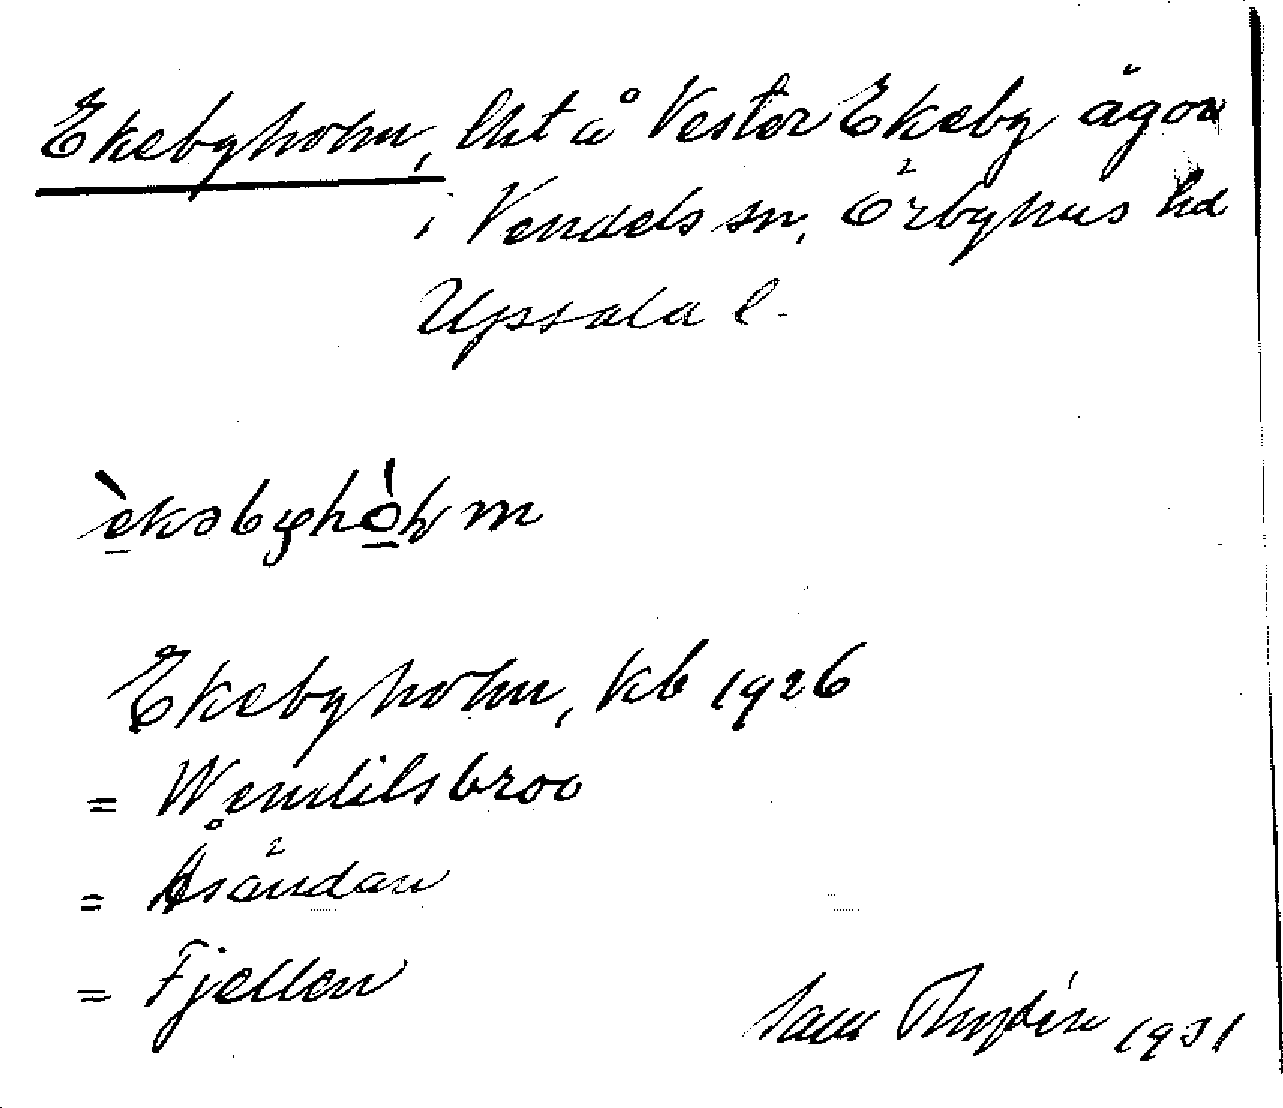 Ekebyholm, lht å Vester Ekeby ägor
i Vendels sn, Örbyhus hd
Upsala l.
èkəbyhòḷm
Ekebyholm, kb 1926
= Wendilsbroo
= Åsändan
= Fjellen
Sam 1931